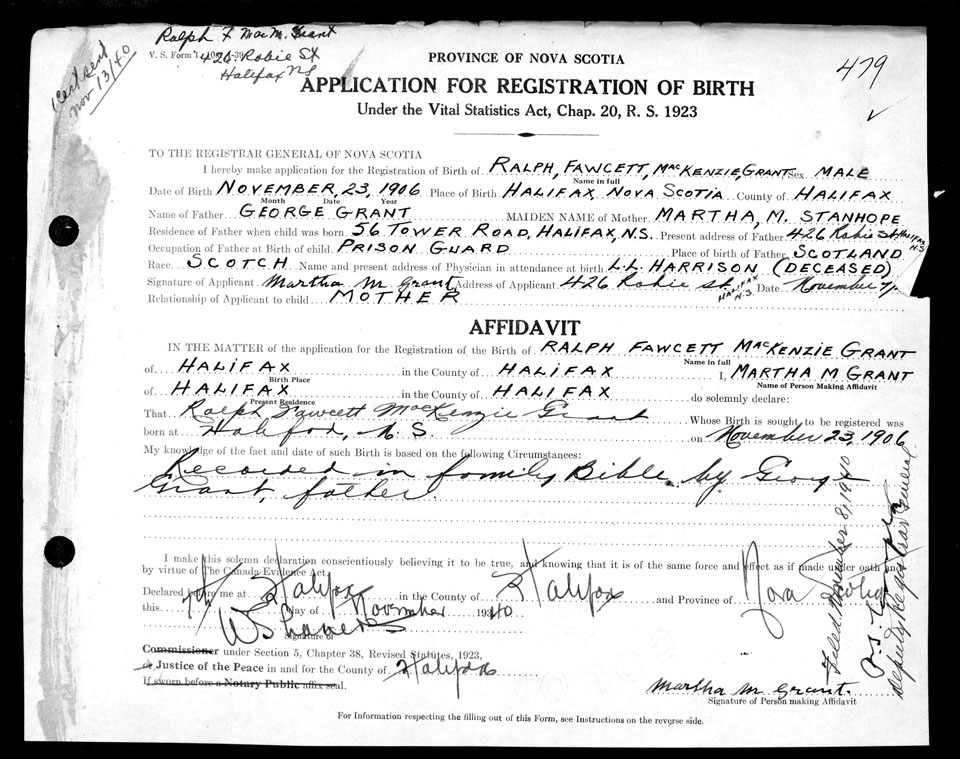 Ralph F MacM. Grant
V. S. Form 426 Robie St
Halifax NS
Cert sent
Nov 13/40
479
PROVINCE OF NOVA SCOTIA
APPLICATION FOR REGISTRATION OF BIRTH
Under the Vital Statistics Act, Chap. 20, R. S. 1923
TO THE REGISTRAR GENERAL OF NOVA SCOTIA
I hereby make application for the Registration of Birth of RALPH, FAWCETT, MACKENZIE, GRANT Sex MALE
Name in full
Date of Birth NOVEMBER, 23, 1906 Place of Birth HALIFAX, NOVA SCOTIA County of HALIFAX
Month Date Year
Name of Father GEORGE GRANT MAIDEN NAME of Mother MARTHA, M. STANHOPE
Residence of Father when child was born. 56 TOWER ROAD, HALIFAX, N.S. Present address of Father 426 Robie St Halifax N.S
Occupation of Father at Birth of child. PRISON GUARD Place of birth of Father SCOTLAND
Race SCOTCH Name and present address of Physician in attendance at birth L.L. HARRISON (DECEASED)
Signature of Applicant Martha M Grant Address of Applicant 426 Robie St. HALIFAX N.S. Date November 7
Relationship of Applicant to child MOTHER
AFFIDAVIT
IN THE MATTER of the application for the Registration of the Birth of RALPH FAWCETT MACKENZIE GRANT
Name in full
of HALIFAX in the County of HALIFAX I, MARTHA M GRANT
Birth Place Name of Person Making Affidavit
of HALIFAX in the County of HALIFAX do solemnly declare:
Present Residence
That Ralph Fawcett MacKenzie Grant Whose Birth is sought to be registered was
born at Halifax, N.S. on November 23, 1906
My knowledge of the fact and date of such Birth is based on the following Circumstances:
Recorded in family Bible by George
Grant, father.
I make this solemn declaration conscientiously believing it to be true, and knowing that it is of the same force and effect as if made under oath and
by virtue of The Canada Evidence Act.
Declared before me at Halifax in the County of Halifax and Province of Nova Scotia
this 7th day of November 1940
Signature of
Commissioner under Section 5, Chapter 38, Revised Statutes, 1923,
or Justice of the Peace in and for the County of Halifax
If sworn before a Notary Public affix seal.
Martha M Grant.
Signature of Person making Affidavit
For Information respecting the filling out of this Form, see Instructions on the reverse side.
Filed November 8, 1940
Deputy Registrar General